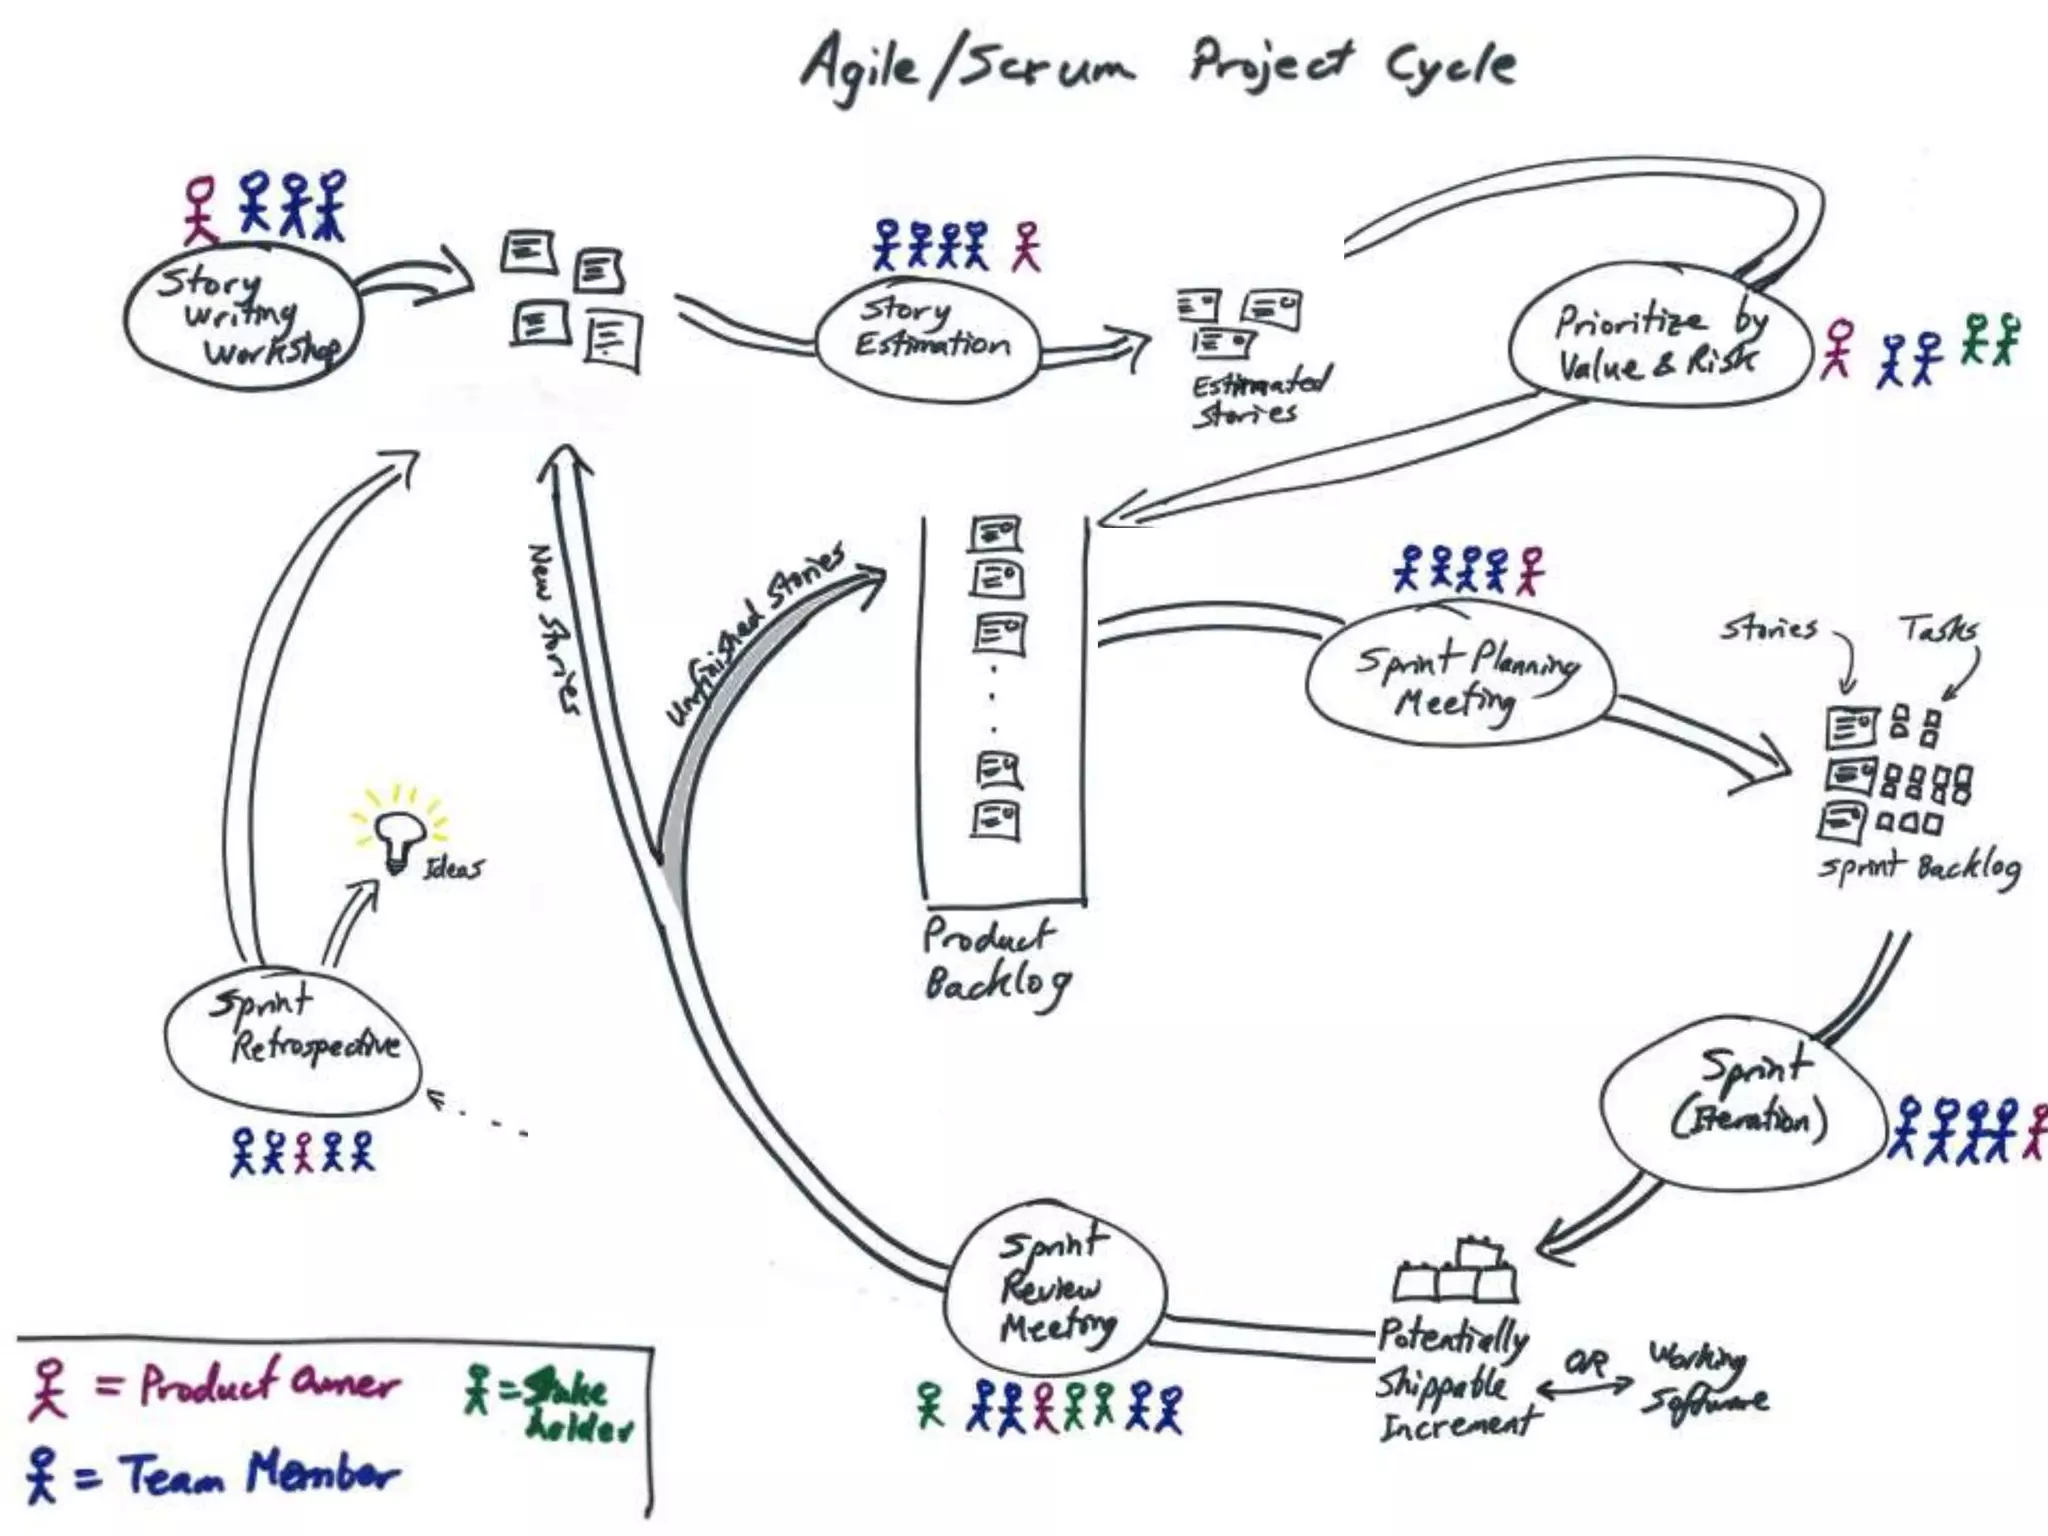 Agile/Scrum Project Cycle
Story
Writing
Workshop
Story
Estimation
Estimated
Stories
Prioritize by
Value & Risk
New Stories
Unfinished Stories
Product
Backlog
Sprint Planning
Meeting
Stories
Tasks
Sprint Backlog
Ideas
Sprint
Retrospective
Sprint
(Iteration)
Sprint
Review
Meeting
Potentially
Shippable
Increment
OR
Working
Software
= Product Owner
= Stake
holder
= Team Member